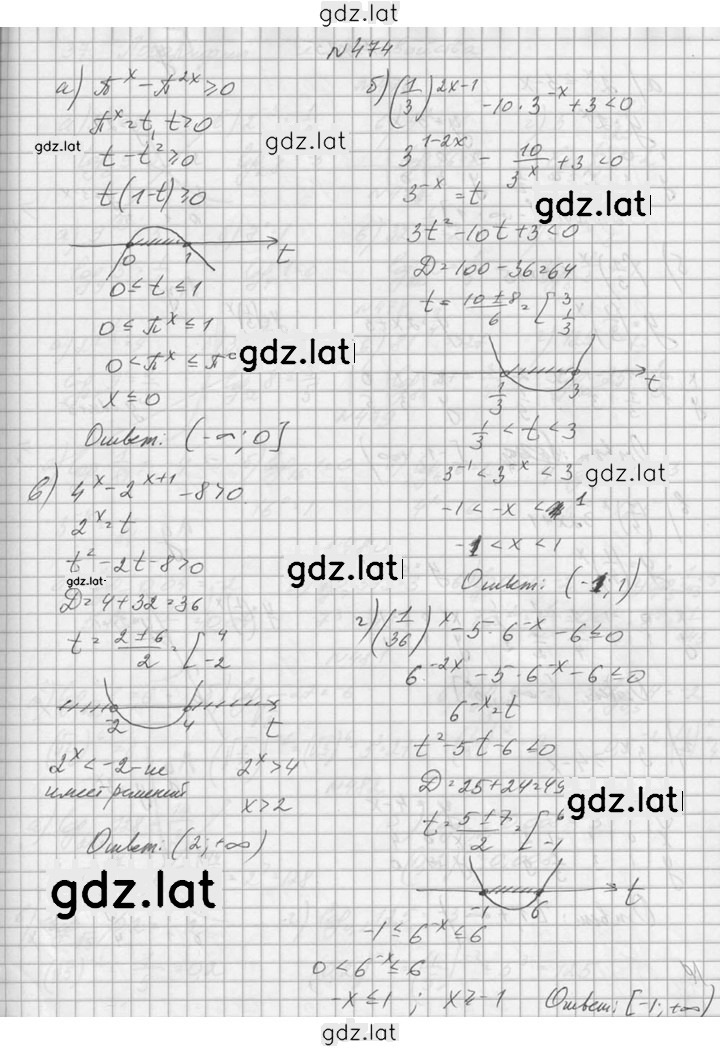 gdz.lat
№474
а) π^x - π^{2x} ≥ 0
π^x = t, t ≥ 0
gdz.lat
t - t² ≥ 0
t(1-t) ≥ 0
0 1 t
0 ≤ t ≤ 1
0 ≤ π^x ≤ 1
0 < π^x ≤ π^0
gdz.lat
x ≤ 0
Ответ: (-∞; 0]
б) (1/3)^{2x-1} - 10·3^{-x} + 3 < 0
gdz.lat
3^{1-2x} - 10/3^x + 3 < 0
3^{-x} = t
gdz.lat
3t² - 10t + 3 < 0
D = 100 - 36 = 64
t = (10 ± 8)/6 = [3; 1/3
1/3 3 t
1/3 < t < 3
3^{-1} < 3^{-x} < 3
gdz.lat
-1 < -x < 1
-1 < x < 1
Ответ: (-1; 1)
в) 4^x - 2^{x+1} - 8 > 0
2^x = t
gdz.lat
t² - 2t - 8 > 0
gdz.lat
D = 4 + 32 = 36
t = (2 ± 6)/2 = [4; -2
-2 4 t
2^x < -2 - не
имеет решений
2^x > 4
x > 2
Ответ: (2; +∞)
gdz.lat
г) (1/36)^x - 5·6^{-x} - 6 ≤ 0
6^{-2x} - 5·6^{-x} - 6 ≤ 0
6^{-x} = t
t² - 5t - 6 ≤ 0
D = 25 + 24 = 49
gdz.lat
t = (5 ± 7)/2 = [6; -1
-1 6 t
-1 ≤ 6^{-x} ≤ 6
0 < 6^{-x} ≤ 6
-x ≤ 1 ; x ≥ -1 Ответ: [-1; +∞)
gdz.lat